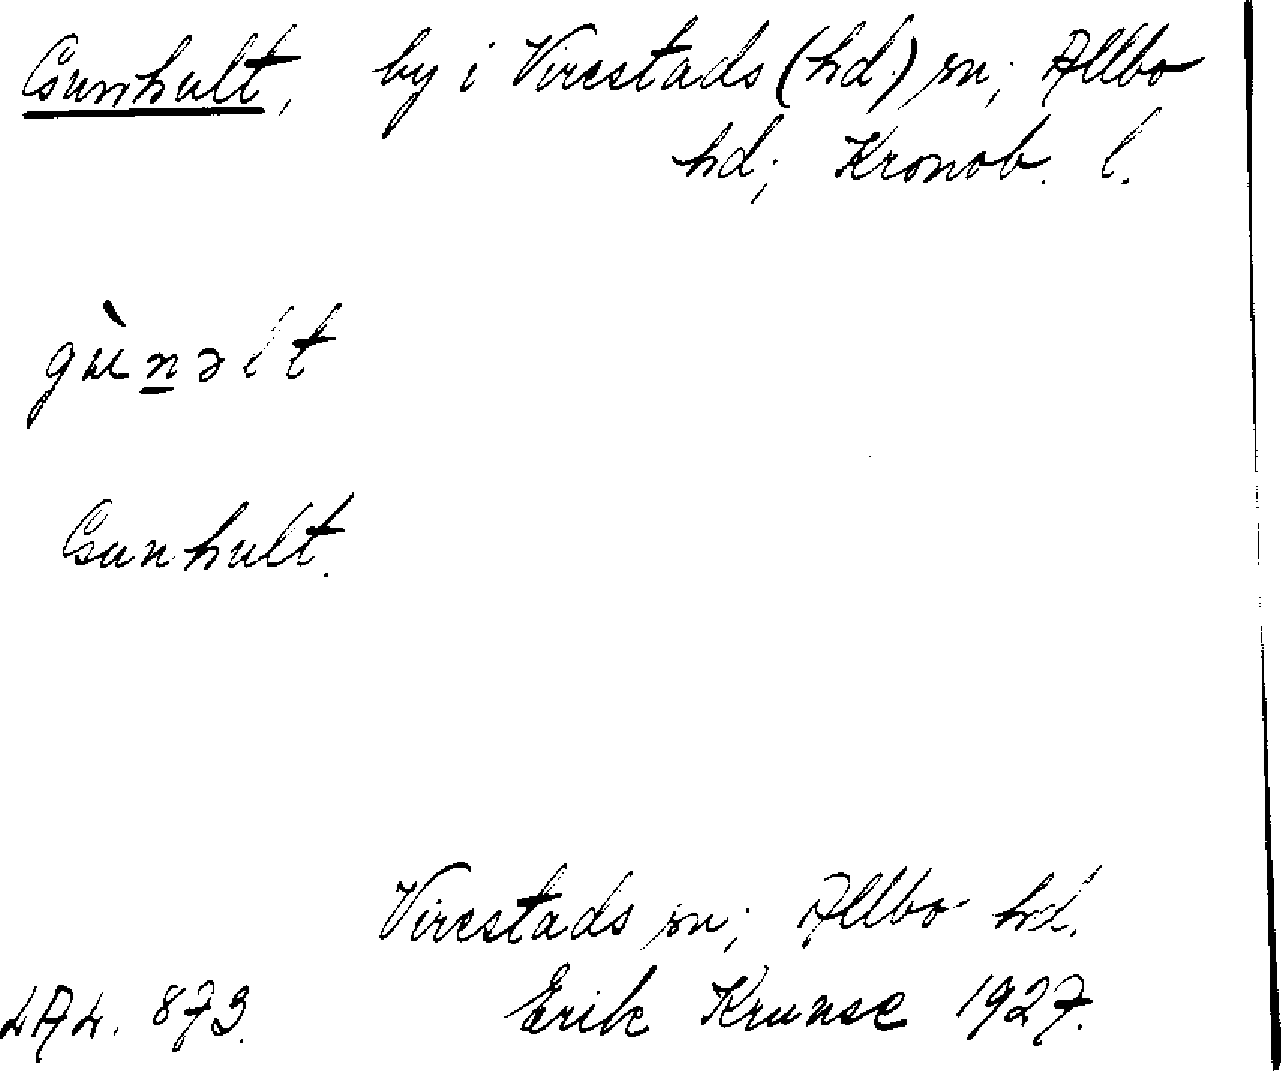 Gunhult, by i Virestads (hd) sn; Allbo
hd; Kronob. l.
gùnəlt
Gunhult.
Virestads sn; Allbo hd.
LAL. 873. Erik Krunse 1927.